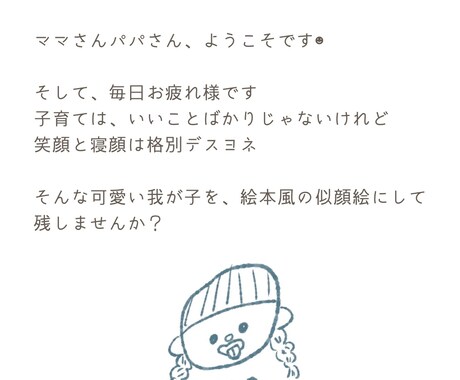 ママさんパパさん、ようこそです☻
そして、毎日お疲れ様です
子育ては、いいことばかりじゃないけれど
笑顔と寝顔は格別デスヨネ
そんな可愛い我が子を、絵本風の似顔絵にして
残しませんか？